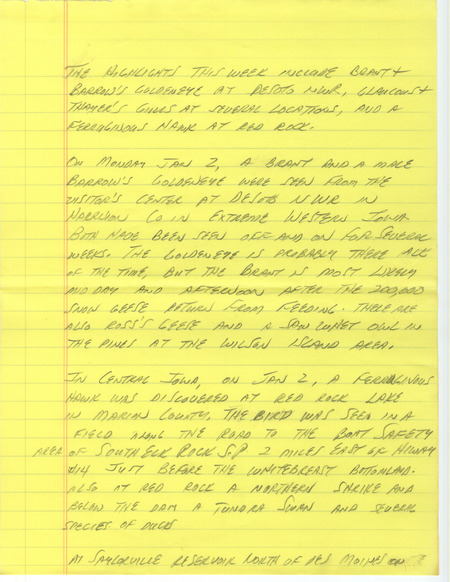 THE HIGHLIGHTS THIS WEEK INCLUDE BRANT +
BARROW'S GOLDENEYE AT DESOTO NWR, GLAUCOUS +
THAYER'S GULLS AT SEVERAL LOCATIONS, AND A
FERRUGINOUS HAWK AT RED ROCK.
ON MONDAY JAN 2, A BRANT AND A MALE
BARROW'S GOLDENEYE WERE SEEN FROM THE
VISITOR'S CENTER AT DESOTO NWR IN
HARRISON CO IN EXTREME WESTERN IOWA.
BOTH HAVE BEEN SEEN OFF AND ON FOR SEVERAL
WEEKS. THE GOLDENEYE IS PROBABLY THERE ALL
OF THE TIME, BUT THE BRANT IS MOST LIKELY
MID DAY AND AFTERNOON AFTER THE 200,000
SNOW GEESE RETURN FROM FEEDING. THERE ARE
ALSO ROSS'S GEESE AND A SAW WHET OWL IN
THE PINES AT THE WILSON ISLAND AREA.
IN CENTRAL IOWA, ON JAN 2, A FERRUGINOUS
HAWK WAS DISCOVERED AT RED ROCK LAKE
IN MARION COUNTY. THE BIRD WAS SEEN IN A
FIELD ALONG THE ROAD TO THE BOAT SAFETY
AREA OF SOUTH ELK ROCK SP 2 MILES EAST OF HIWAY
#14 JUST BEFORE THE WHITEBREAST BOTTOMLAND.
ALSO AT RED ROCK A NORTHERN SHRIKE AND
BELOW THE DAM A TUNDRA SWAN AND SEVERAL
SPECIES OF DUCKS
AT SAYLORVILLE RESERVOIR NORTH OF DES MOINES ON